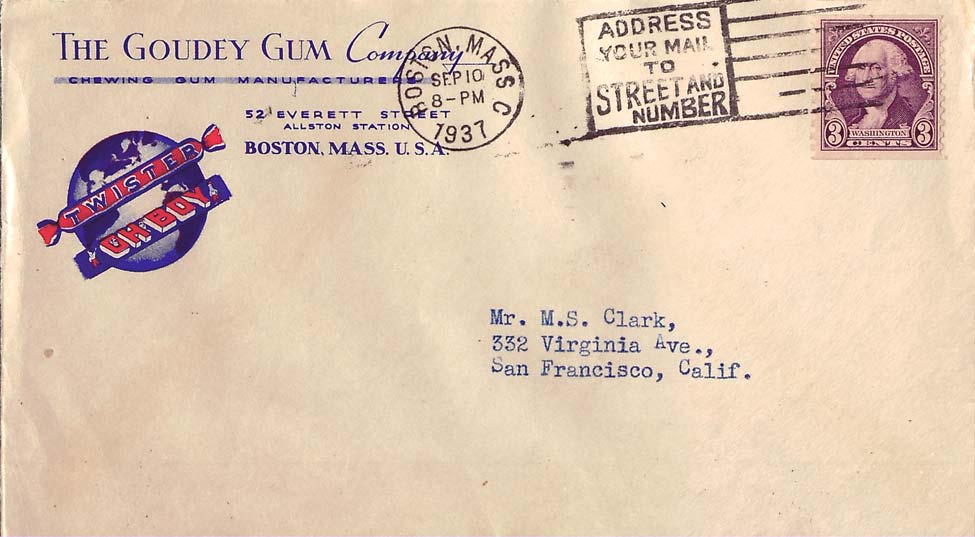 THE GOUDEY GUM Company
CHEWING GUM MANUFACTURERS
52 EVERETT STREET
ALLSTON STATION
BOSTON, MASS. U.S.A.
TWISTER
OH BOY
BOSTON, MASS. C
SEP 10
8-PM
1937
ADDRESS
YOUR MAIL
TO
STREET AND
NUMBER
UNITED STATES POSTAGE
3 WASHINGTON 3
CENTS
Mr. M.S. Clark,
332 Virginia Ave.,
San Francisco, Calif.